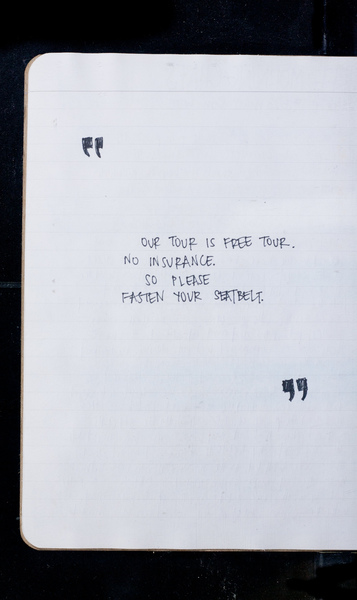 "
OUR TOUR IS FREE TOUR.
NO INSURANCE.
SO PLEASE
FASTEN YOUR SEATBELT.
"